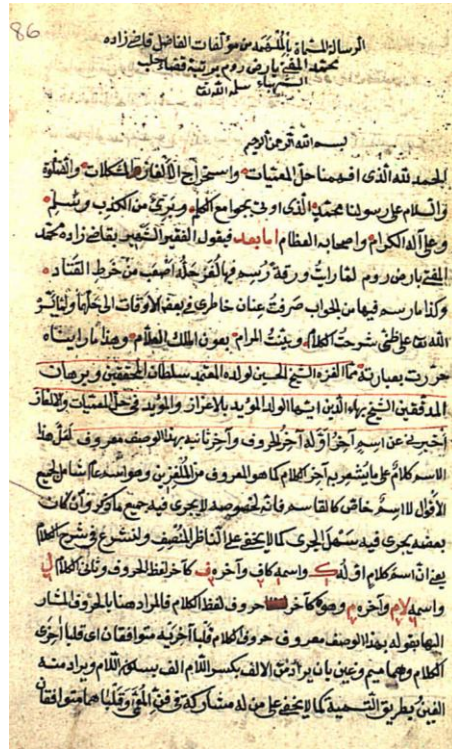 86
الرسالة المسماة بالمحمدية من مؤلفات الفاضل قاضي زاده
محمد المفتي بارض روم برتبة قضاء حلب
الشهباء سلمه الله تعالى
بسم الله الرحمن الرحيم
الحمد لله الذي افهمنا حل المعميات واستخراج الالغاز والمشكلات والصلوة
والسلام على رسولنا محمد الذي اوتي بجوامع الكلم وبرئ من الكذب وسلم
وعلى آله الكرام واصحابه العظام اما بعد فيقول الفقير الشهير بقاضي زاده محمد
المفتي بارض روم لما رايت ورقة رسم فيها لغز حله اصعب من خرط القتاد
وكذا ما رسم فيها من الجواب صرفت عنان خاطري في بعض الاوقات الى حلها ولما يسر
الله تعالى على ظني شرحت الكلام وبينت المرام بعون الملك العلام وهذا ما رايناه
حررت بعبارته مما الغزه الشيخ الحسين لولده المعتمد سلطان المحققين وبرهان
المدققين الشيخ بهاء الدين ايها الولد المؤيد بالاعزاز والمؤيد في حل المعميات والالغاز
اخبرني عن اسم آخر اوله آخر الحروف وآخر ثانيه بهذا الوصف معروف لعل هذا
الاسم كلام على ما يشعر به آخر الكلام كما هو المعروف من الملغزين وهو اسم عام شامل لجميع
الاقوال لا اسم خاص كالقاسم فانه لخصوصه لا يجري فيه جميع ما ذكر وان كان
بعضه يجري فيه سهل الجرى كما لا يخفى على الناظر المنصف ولنشرع في شرح الكلام
يعني ان اسم كلام اوله ك واسمه كاف وآخره ف كآخر لفظ الحروف وثاني الكلام ل
واسمه لام وآخره م وهو كآخر حروف لفظ الكلام فالمراد هنا بالحروف المشار
اليها بقوله بهذا الوصف معروف حروف الكلام قلبا آخريه متوافقان اى قلبا اخرى
الكلام وهما ميم وعين بان يراد من الالف بكسر اللام الف بسكون اللام ويراد منه
الغين بطريق التسمية كما لا يخفى على من له مشاركة في فن المعمى وقلباهما متوافقان